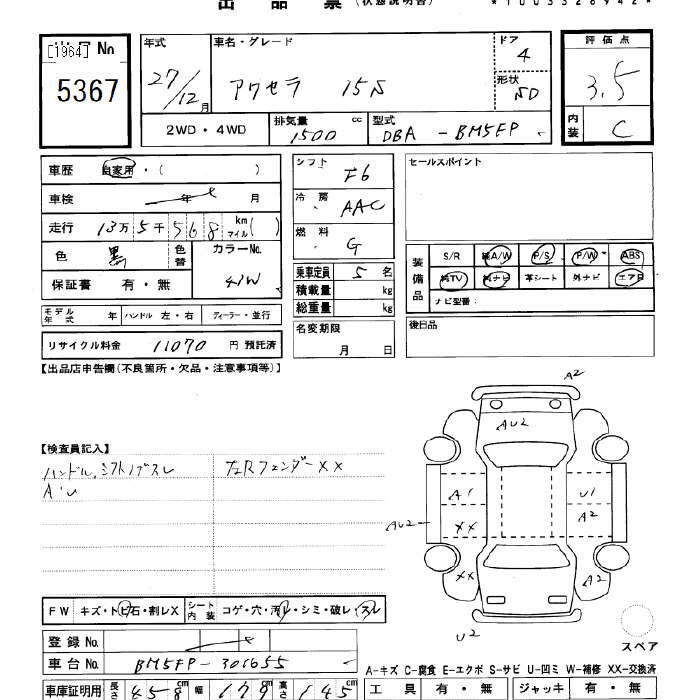 出品票 (状態説明書) *1003326942*
[1964] No 5367
年式 27/12月
車名・グレード アクセラ 15S
ドア 4
形状 SD
評価点 3.5
内装 C
2WD・4WD
排気量 1500 cc
型式 DBA - BM5FP
車歴 自家用・( )
車検 年 月
走行 13万5千568 km マイル( )
色 黒 色替 カラーNo. 41W
保証書 有・無
シフト F6
冷房 AAC
燃料 G
乗車定員 5 名
積載量 kg
総重量 kg
セールスポイント
装備品 S/R 純A/W P/S P/W ABS
純TV 純ナビ 革シート 外ナビ エアB
ナビ型番:
モデル年式 年 ハンドル 左・右 ディーラー・並行
名変期限 月 日
後日品
リサイクル料金 11070 円 預託済
【出品店申告欄(不良箇所・欠品・注意事項等)】
【検査員記入】
ハンドル、シフトノブスレ
A・U
左Rフェンダー××
A2
AU2
A1 U1
AU2 XX A2
XX A2
U2
スペア
FW キズ・トビ石・割レX シート内装 コゲ・穴・汚レ・シミ・破レ・スレ
登録No.
車台No. BM5FP-301655
A-キズ C-腐食 E-エクボ S-サビ U-凹ミ W-補修 XX-交換済
車庫証明用 長さ 458cm 幅 179cm 高さ 145cm
工具 有・無 ジャッキ 有・無